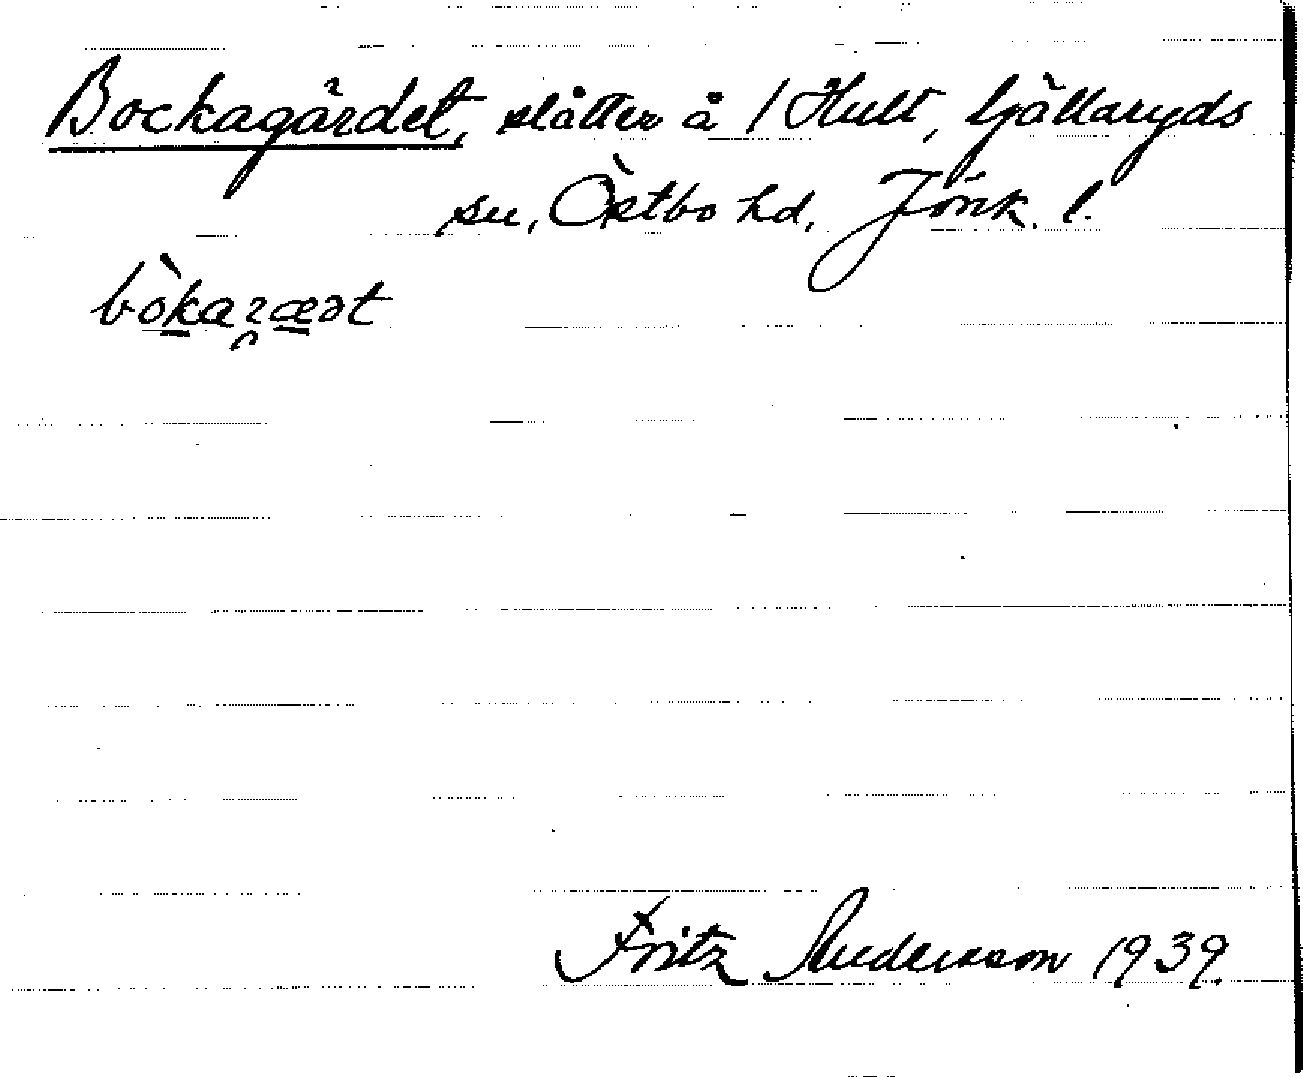 Bockagärdet, slåtter å 1 Hult, Gällaryds
sn, Östbo hd, Jönk. l.
bòkaʒæət
Fritz Andersson 1939.